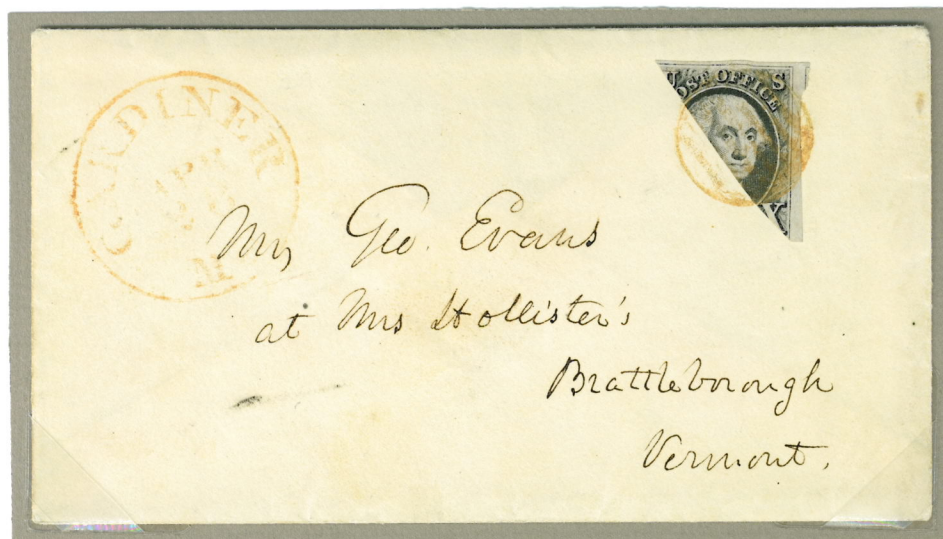 GARDINER
U S
POST OFFICE
X
Mrs Geo. Evans
at Mrs Hollister's
Brattleborough
Vermont.